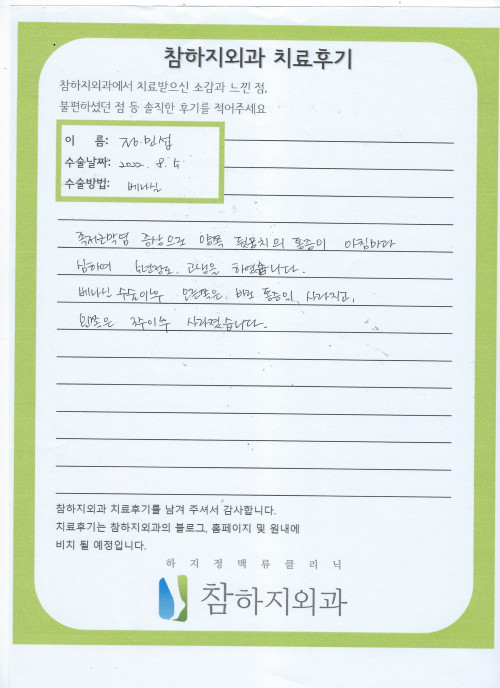 참하지외과 치료후기
참하지외과에서 치료받으신 소감과 느낀 점,
불편하셨던 점 등 솔직한 후기를 적어주세요
이 름: 민섭
수술날짜: 2022. 8.
수술방법: 베나실
족저근막염 증상으로 양쪽 뒤꿈치의 통증이 아침마다
심하여 고생을 하였습니다.
베나실 수술이후 오른쪽은 바로 통증이 사라지고,
왼쪽은 이후 사라졌습니다.
참하지외과 치료후기를 남겨 주셔서 감사합니다.
치료후기는 참하지외과의 블로그, 홈페이지 및 원내에
비치 될 예정입니다.
하지정맥류클리닉
참하지외과